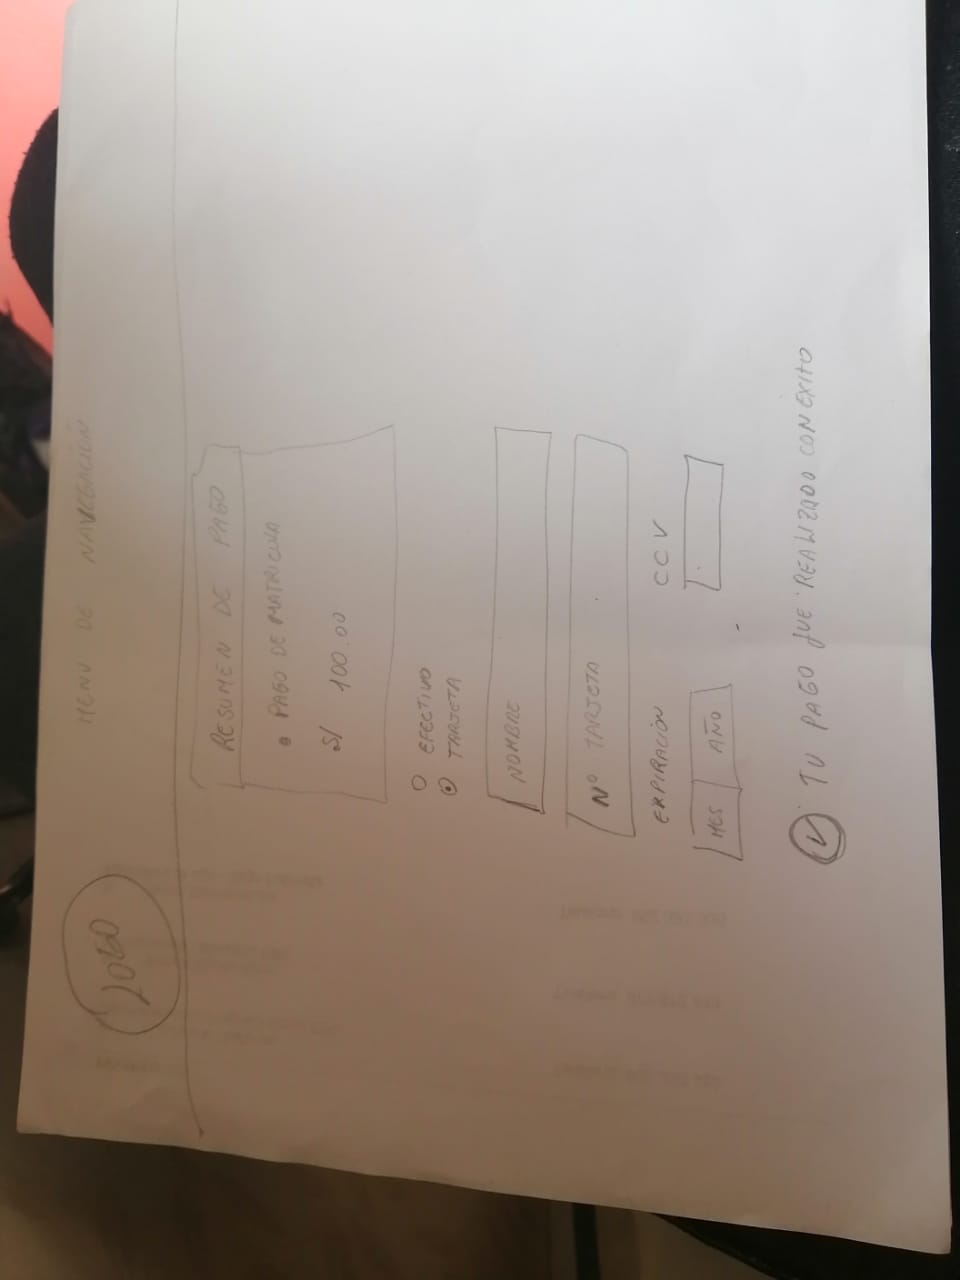 LOGO MENU DE NAVEGACIÓN
RESUMEN DE PAGO
• PAGO DE MATRICULA
S/ 100.00
EFECTIVO
TARJETA
NOMBRE
Nº TARJETA
EXPIRACIÓN CCV
MES AÑO
TU PAGO FUE REALIZADO CON EXITO